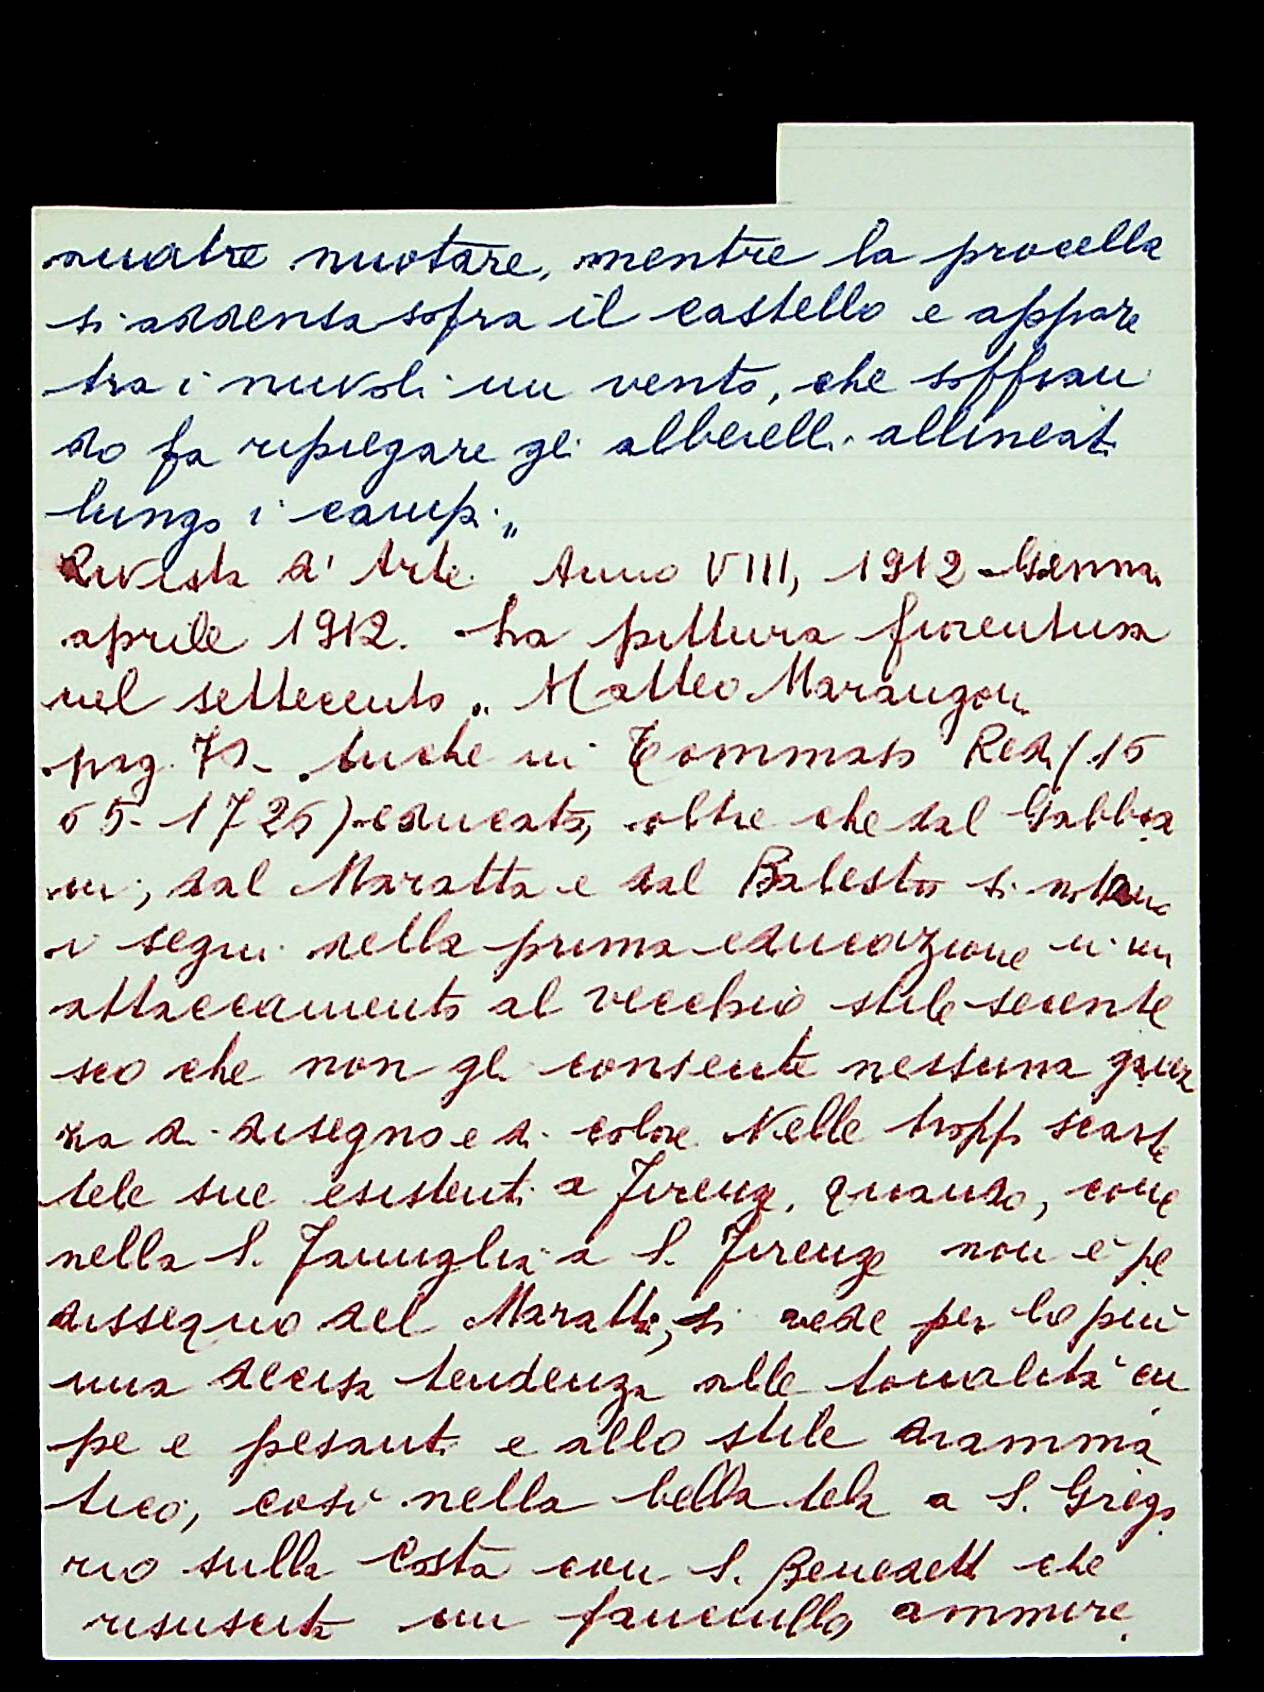 anatre nuotare, mentre la procella
si addensa sopra il castello e appare
tra i nuvoli un vento, che soffian
do fa ripiegare gli alberelli allineati
lungo i campi„
Rivista d'Arte Anno VIII, 1912 - Genna
aprile 1912. La pittura fiorentina
nel settecento„ Matteo Marangoni
pag. 78- Anche in Tommaso Redi (16
65-1726) educato, oltre che dal Gabbia
ni, dal Maratta e dal Balestra si notano
i segni della prima educazione in un
attaccamento al vecchio stile seicente
sco che non gli consente nessuna gaiez
za di disegno e di colore Nelle troppo scarse
tele sue esistenti a Firenze, quando, come
nella S. Famiglia a S. Firenze non è pe
dissequo del Maratti, si vede per lo più
una decisa tendenza alle tonalità cu
pe e pesanti e allo stile dramma
tico, così nella bella tela a S. Grego
rio sulla Costa con S. Benedetto che
risuscita un fanciullo, ammire